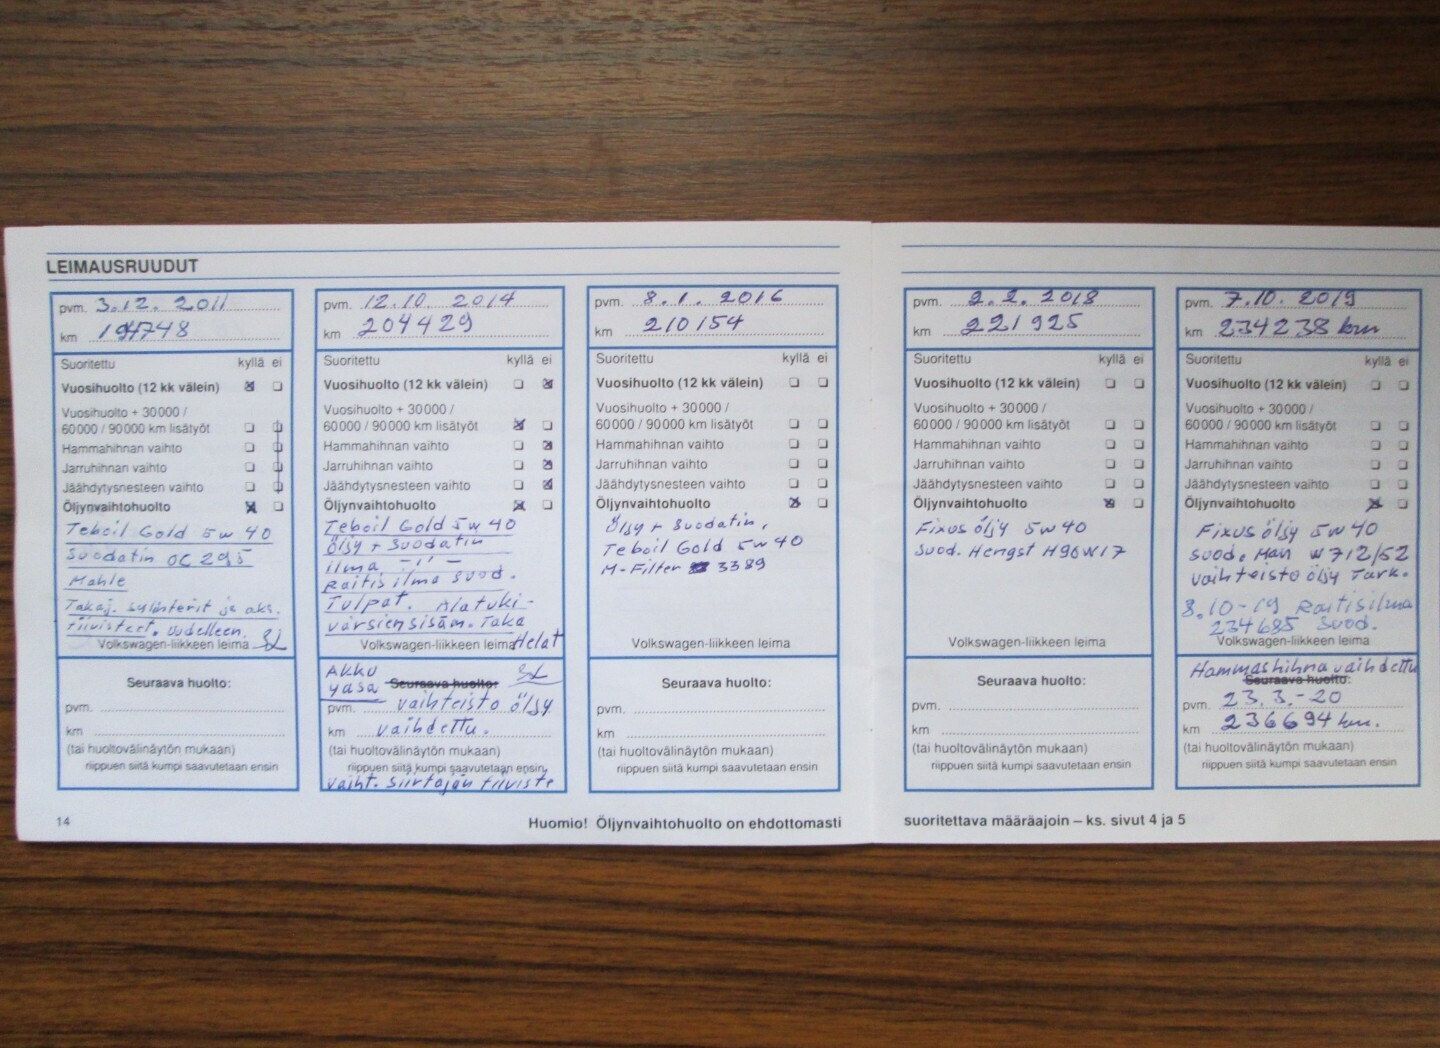 LEIMAUSRUUDUT
pvm. 3.12. 2011
km
Suoritettu kyllä ei
Vuosihuolto (12 kk välein)
Vuosihuolto + 30000 /
60000 / 90000 km lisätyöt
Hammahihnan vaihto
Jarruhihnan vaihto
Jäähdytysnesteen vaihto
Öljynvaihtohuolto
Teboil Gold 5w 40
Suodatin OC 295
Mahle
Takaj. sylinterit ja aks.
tiivisteet. uudelleen.
Volkswagen-liikkeen leima
Seuraava huolto:
pvm.
km
(tai huoltovälinäytön mukaan)
riippuen siitä kumpi saavutetaan ensin
14
pvm. 12.10. 2014
km 204429
Suoritettu kyllä ei
Vuosihuolto (12 kk välein)
Vuosihuolto + 30000 /
60000 / 90000 km lisätyöt
Hammahihnan vaihto
Jarruhihnan vaihto
Jäähdytysnesteen vaihto
Öljynvaihtohuolto
Teboil Gold 5w 40
Öljy + Suodatin
ilma -"-
Raitis ilma suod.
Tulpat. Alatuki-
varsien sisäm. Taka
Volkswagen-liikkeen leima Helat
Akku
yasa Seuraava huolto:
pvm. vaihteisto öljy
km vaihdettu.
(tai huoltovälinäytön mukaan)
riippuen siitä kumpi saavutetaan ensin
vaiht. Siirtäjän tiiviste
pvm. 8.1. 2016
km 210154
Suoritettu kyllä ei
Vuosihuolto (12 kk välein)
Vuosihuolto + 30000 /
60000 / 90000 km lisätyöt
Hammahihnan vaihto
Jarruhihnan vaihto
Jäähdytysnesteen vaihto
Öljynvaihtohuolto
Öljy + Suodatin,
Teboil Gold 5w 40
M-Filter 3389
Volkswagen-liikkeen leima
Seuraava huolto:
pvm.
km
(tai huoltovälinäytön mukaan)
riippuen siitä kumpi saavutetaan ensin
Huomio! Öljynvaihtohuolto on ehdottomasti
pvm. 2.2. 2018
km 221925
Suoritettu kyllä ei
Vuosihuolto (12 kk välein)
Vuosihuolto + 30000 /
60000 / 90000 km lisätyöt
Hammahihnan vaihto
Jarruhihnan vaihto
Jäähdytysnesteen vaihto
Öljynvaihtohuolto
Fixus öljy 5w40
Suod. Hengst H90W17
Volkswagen-liikkeen leima
Seuraava huolto:
pvm.
km
(tai huoltovälinäytön mukaan)
riippuen siitä kumpi saavutetaan ensin
suoritettava määräajoin – ks. sivut 4 ja 5
pvm. 7.10. 2019
km 234238 km
Suoritettu kyllä ei
Vuosihuolto (12 kk välein)
Vuosihuolto + 30000 /
60000 / 90000 km lisätyöt
Hammahihnan vaihto
Jarruhihnan vaihto
Jäähdytysnesteen vaihto
Öljynvaihtohuolto
Fixus öljy 5w40
suod. Man W712/52
vaihteisto öljy Tark.
8.10-19 Raitisilma
234685 Suod.
Volkswagen-liikkeen leima
Hammashihna vaihdettu
Seuraava huolto:
pvm. 23.3.-20
km 236694 km.
(tai huoltovälinäytön mukaan)
riippuen siitä kumpi saavutetaan ensin